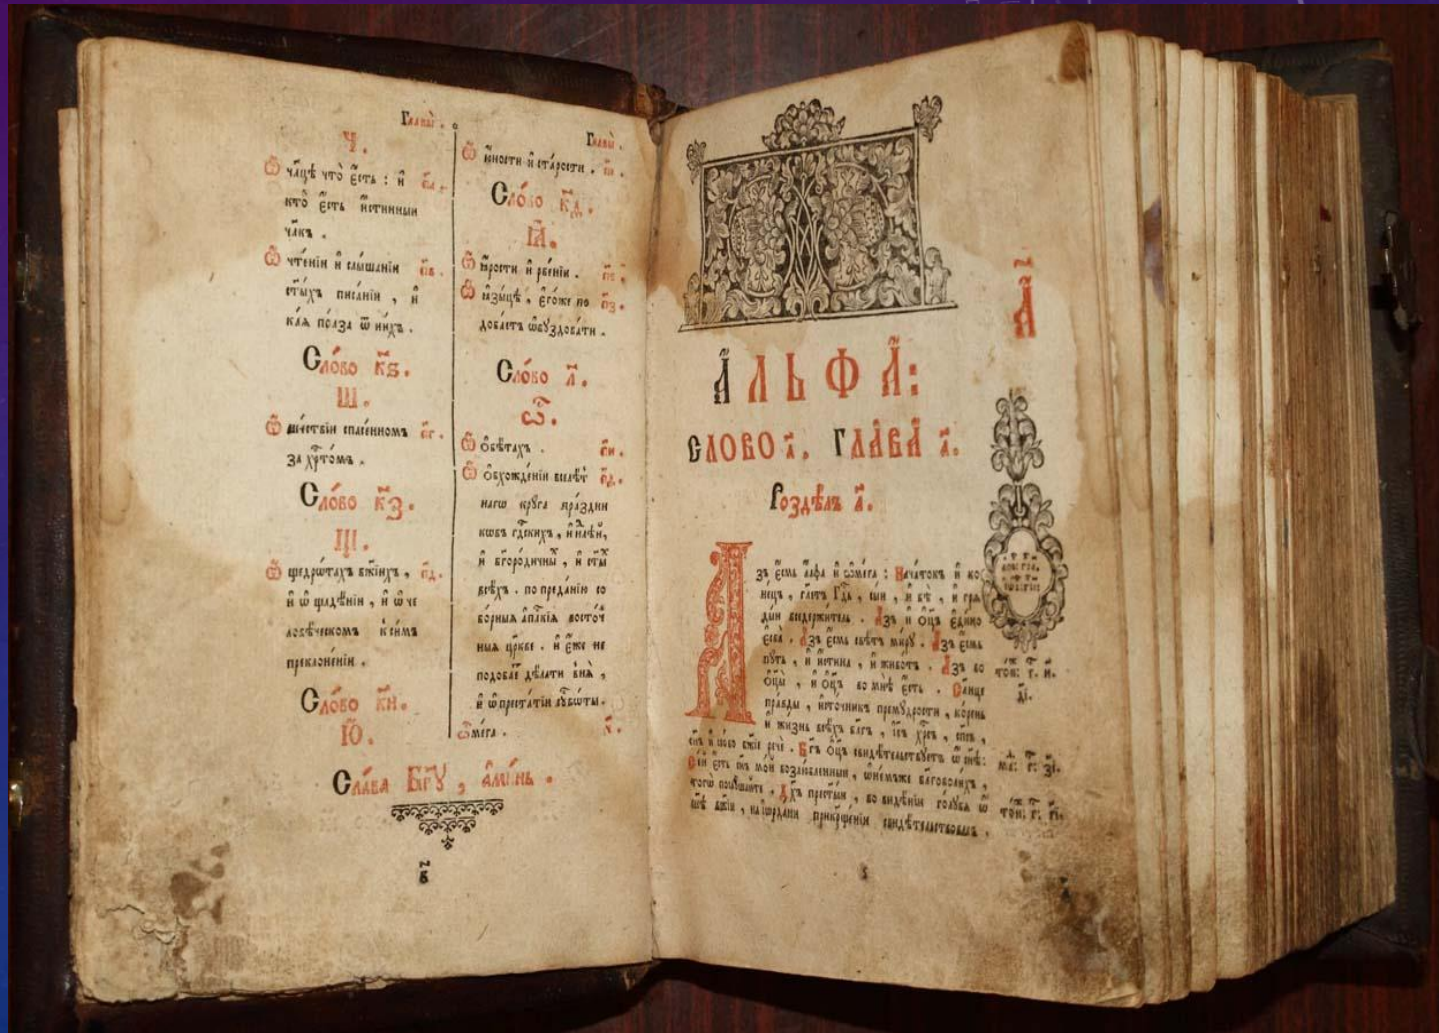 Главы.
Ч.
Ѿ чл҃цѣ что̀ є҆́сть : и҆
кто̀ є҆́сть и҆стинный
чл҃къ .
Ѿ чте́нїи и҆ слы́шанїи
ст҃ы́хъ писа́нїи , и҆
ка́ѧ по́лза ѿ ни́хъ .
Сло́во к҃ѕ.
Ш.
Ѿ ше́ствїи спасе́нномъ
за хр҃то́мъ .
Сло́во к҃з.
Щ.
Ѿ щедро́тахъ бж҃їихъ , п҃д.
и҆ ѡ҆ щадѣ́нїи , и҆ ѡ҆ че
лове́ческомъ к си́мъ
преклоне́нїи .
Сло́во к҃и.
Ю҆.
Главы.
Ѿ ю҆́ности и҆ ста́рости .
Сло́во к҃д.
Ꙗ҆.
Ѿ ꙗ҆́рости и҆ рве́нїи .
Ѿ ꙗ҆зы́цѣ , є҆го́же по п҃з.
доба́етъ ѡ҆буздова́ти .
Сло́во л҃.
Ѿ.
Ѿ ѻ҆бѣ́тахъ . п҃и.
Ѿ ѻ҆бхожде́нїи вселѣ́т
нагѡ кру́га пра́здни
кѡвъ гд҇скихъ ,
и҆ бг҃оро́дичны , и҆ ст҃ы
всѣ́хъ . по преда́нїю со
бо́рныѧ а҆п҇лкїѧ восто́ч
ныѧ цр҃кве . и҆ є҆́же не
подоба́е дѣ́лати внѧ̀ ,
и҆ ѡ҆ преста́тїи сꙋббѡ́ты .
Ѡ҆ме́га . ч҃.
Сла́ва Бг҃ꙋ , а҆ми́нь .
А҃
А҆ЛЬФА҆:
СЛОВО а҃. ГЛАВА а҃.
Роздѣ́лъ а҃.
Азъ є҆́смь а҆́лфа и҆ ѡ҆ме́га : Нача́токъ и҆ ко
не́цъ , гл҃етъ Гд҇ь , сы́и , и҆ бѣ̀ , и҆ грѧ
ды́и вседержи́тель . А҆́зъ и҆ Ѻ҆ц҃ъ є҆ди́но
є҆сва̀ . А҆́зъ є҆́смь свѣ́тъ ми́рꙋ . А҆́зъ є҆́смь
пꙋ́ть , и҆ и҆́стина , и҆ живо́тъ . А҆́зъ во
Ѻ҆ц҃ы , и҆ Ѻ҆ц҃ъ во мнѣ̀ є҆́сть . Сл҃нце
пра́вды , и҆сто́чникъ премꙋ́дрости , ко́рень
и҆ жи́знь всѣ́хъ бл҃гъ , і҆с҃ъ хр҇съ , сп҃съ ,
сн҃ъ и҆ сло́во бж҃їе речѐ . Бг҃ъ Ѻ҆ц҃ъ свидѣ́тельствꙋетъ ѿ сн҃ѣ :
Се́й є҆́сть сн҃ъ мо́й возлю́бленный , ѡ҆не́мъже бл҃гово́лихъ ,
того̀ послꙋ́шайте . Дх҃ъ прест҃ы́и , во видѣ́нїи го́лꙋбѧ ѡ҆
сн҃ѣ бж҃їи , на і҆ѻрда́ни прикр҃ще́нїи свидѣ́тельствова́лъ ,